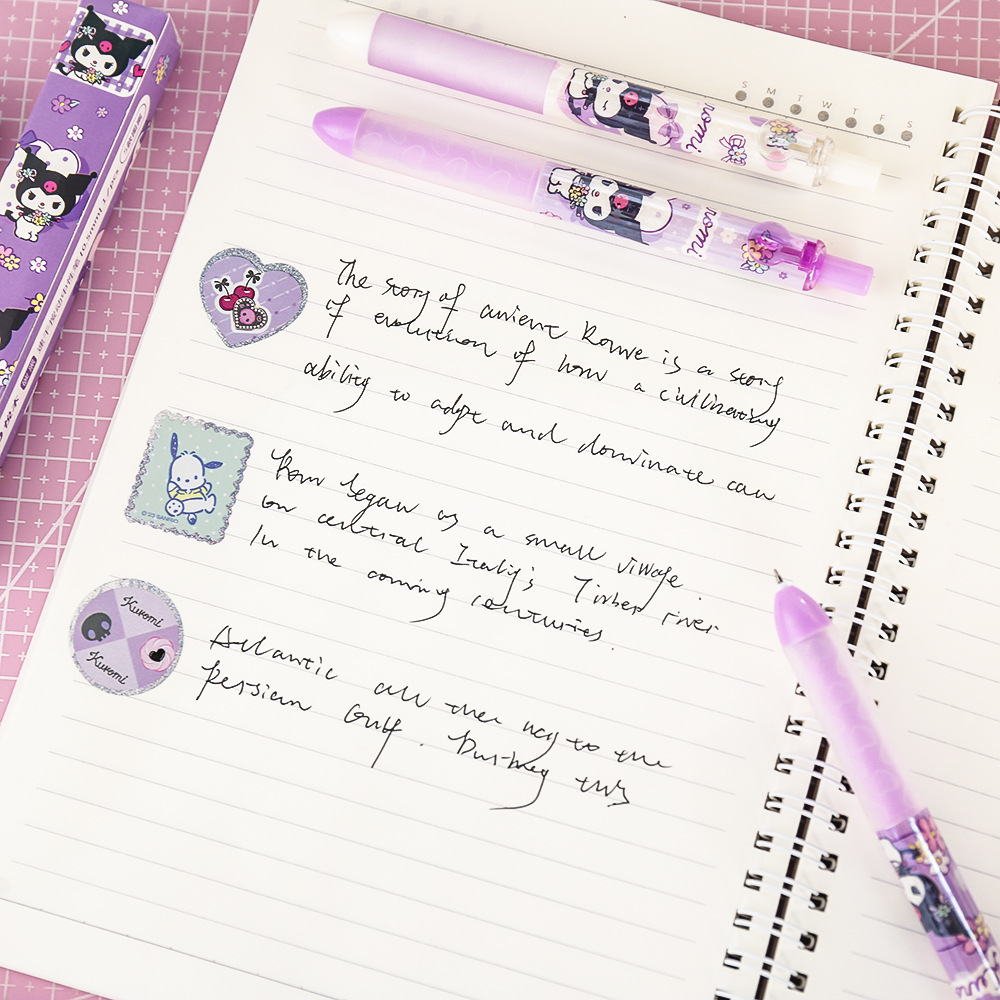 S M T W T F S
nomi
nomi
The story of anient Rome is a story
of evolution of how a civilizating
ability to adpt and dominate can
Rom began as a small village.
on central Italy's Tirber river
In the coming centuries.
Atlantic all ther way to the
Persian Gulf. this
© '23 SANRIO
Kuromi
Kuromi